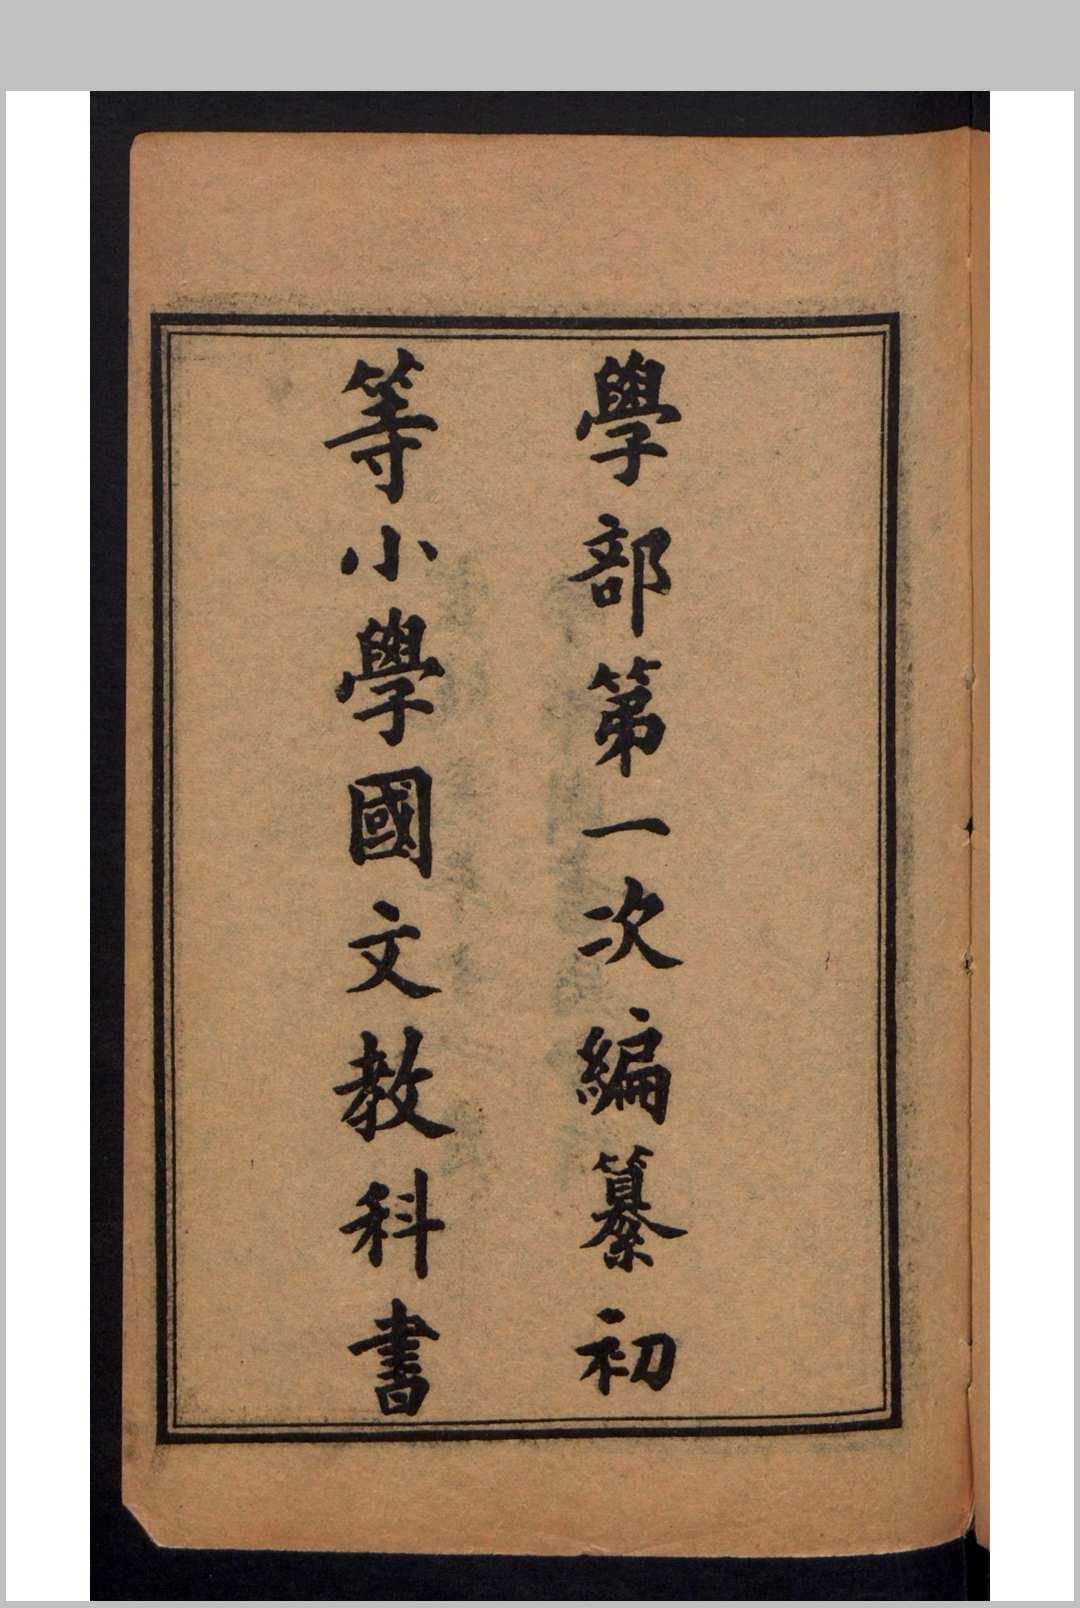 學部第一次編纂初
等小學國文教科書